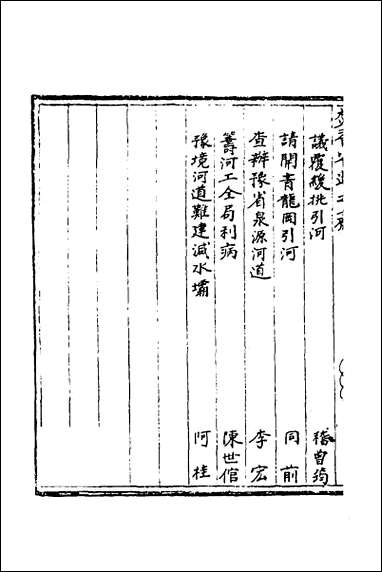 議覆緩挑引河 嵇曾筠
請開青龍岡引河 同前
查辦豫省泉源河道 李宏
籌河工全局利病 陳世倌
豫境河道難建減水壩 阿桂